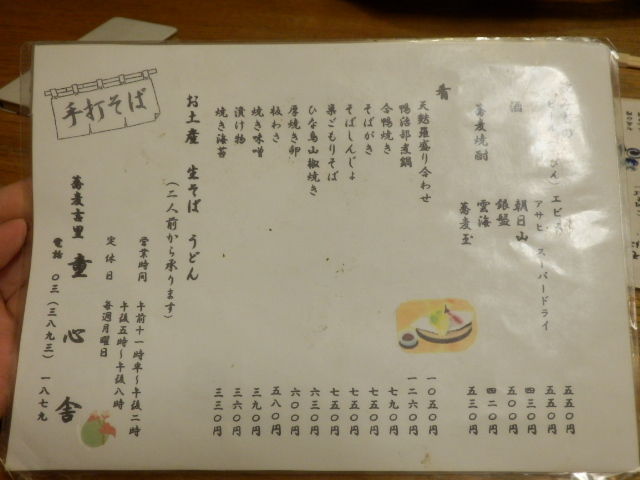 エビス
アサヒ スーパードライ
酒
朝日山
銀盤
蕎麦焼酎
雲海
蕎麦玉
五五〇円
五五〇円
四三〇円
五〇〇円
四二〇円
五三〇円
肴
天麩羅盛り合わせ 一〇五〇円
鴨治部煮鍋 一二六〇円
合鴨焼き 七九〇円
そばがき 七五〇円
そばしんじょ 七五〇円
巣ごもりそば 七五〇円
ひな鳥山椒焼き 六三〇円
厚焼き卵 六〇〇円
板わさ 五八〇円
焼き味噌 三九〇円
漬け物 三六〇円
焼き海苔 三三〇円
お土産 生そば うどん
(二人前から承ります)
手打そば
営業時間 午前十一時半〜午後二時
午後五時〜午後八時
定休日 毎週月曜日
蕎麦吉里 童心舎
電話 〇三(三八九三)一八七九